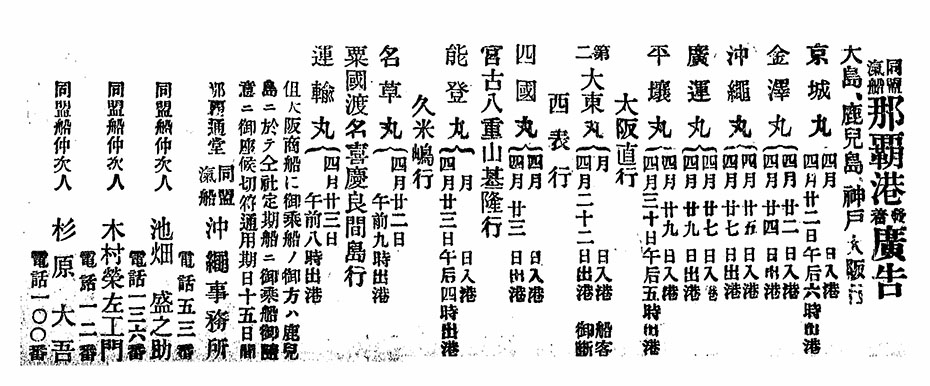 同盟汽船那覇港發着廣告
大島、鹿兒島、神戸、大阪行
京城丸 四月 日入港 四月廿二日午后六時出港
金澤丸 四月廿二日入港 四月廿四日出港
沖繩丸 四月廿五日入港 四月廿七日出港
廣運丸 四月廿七日入港 四月廿九日出港
平壤丸 四月廿九日入港 四月三十日午后五時出港
大阪直行
第二大東丸 月 日入港 四月二十二日出港 船客御斷
西表行
四國丸 四月 日入港 四月廿三日出港
宮古八重山基隆行
能登丸 月 日入港 四月廿三日午后四時出港
久米嶋行
名草丸 四月廿二日午前九時出港
粟國渡名喜慶良間島行
運輸丸 四月廿三日午前八時出港
但大阪商船に御乘船ノ御方ハ鹿兒
島ニ於テ仝社定期船ニ御乘船御隨
意ニ御座候切符通用期日十五日間
那覇通堂 同盟汽船 沖繩事務所
電話五三番
同盟船仲次人 池畑盛之助
電話一三六番
同盟船仲次人 木村榮左工門
電話一二番
同盟船仲次人 杉原大吾
電話一〇〇番